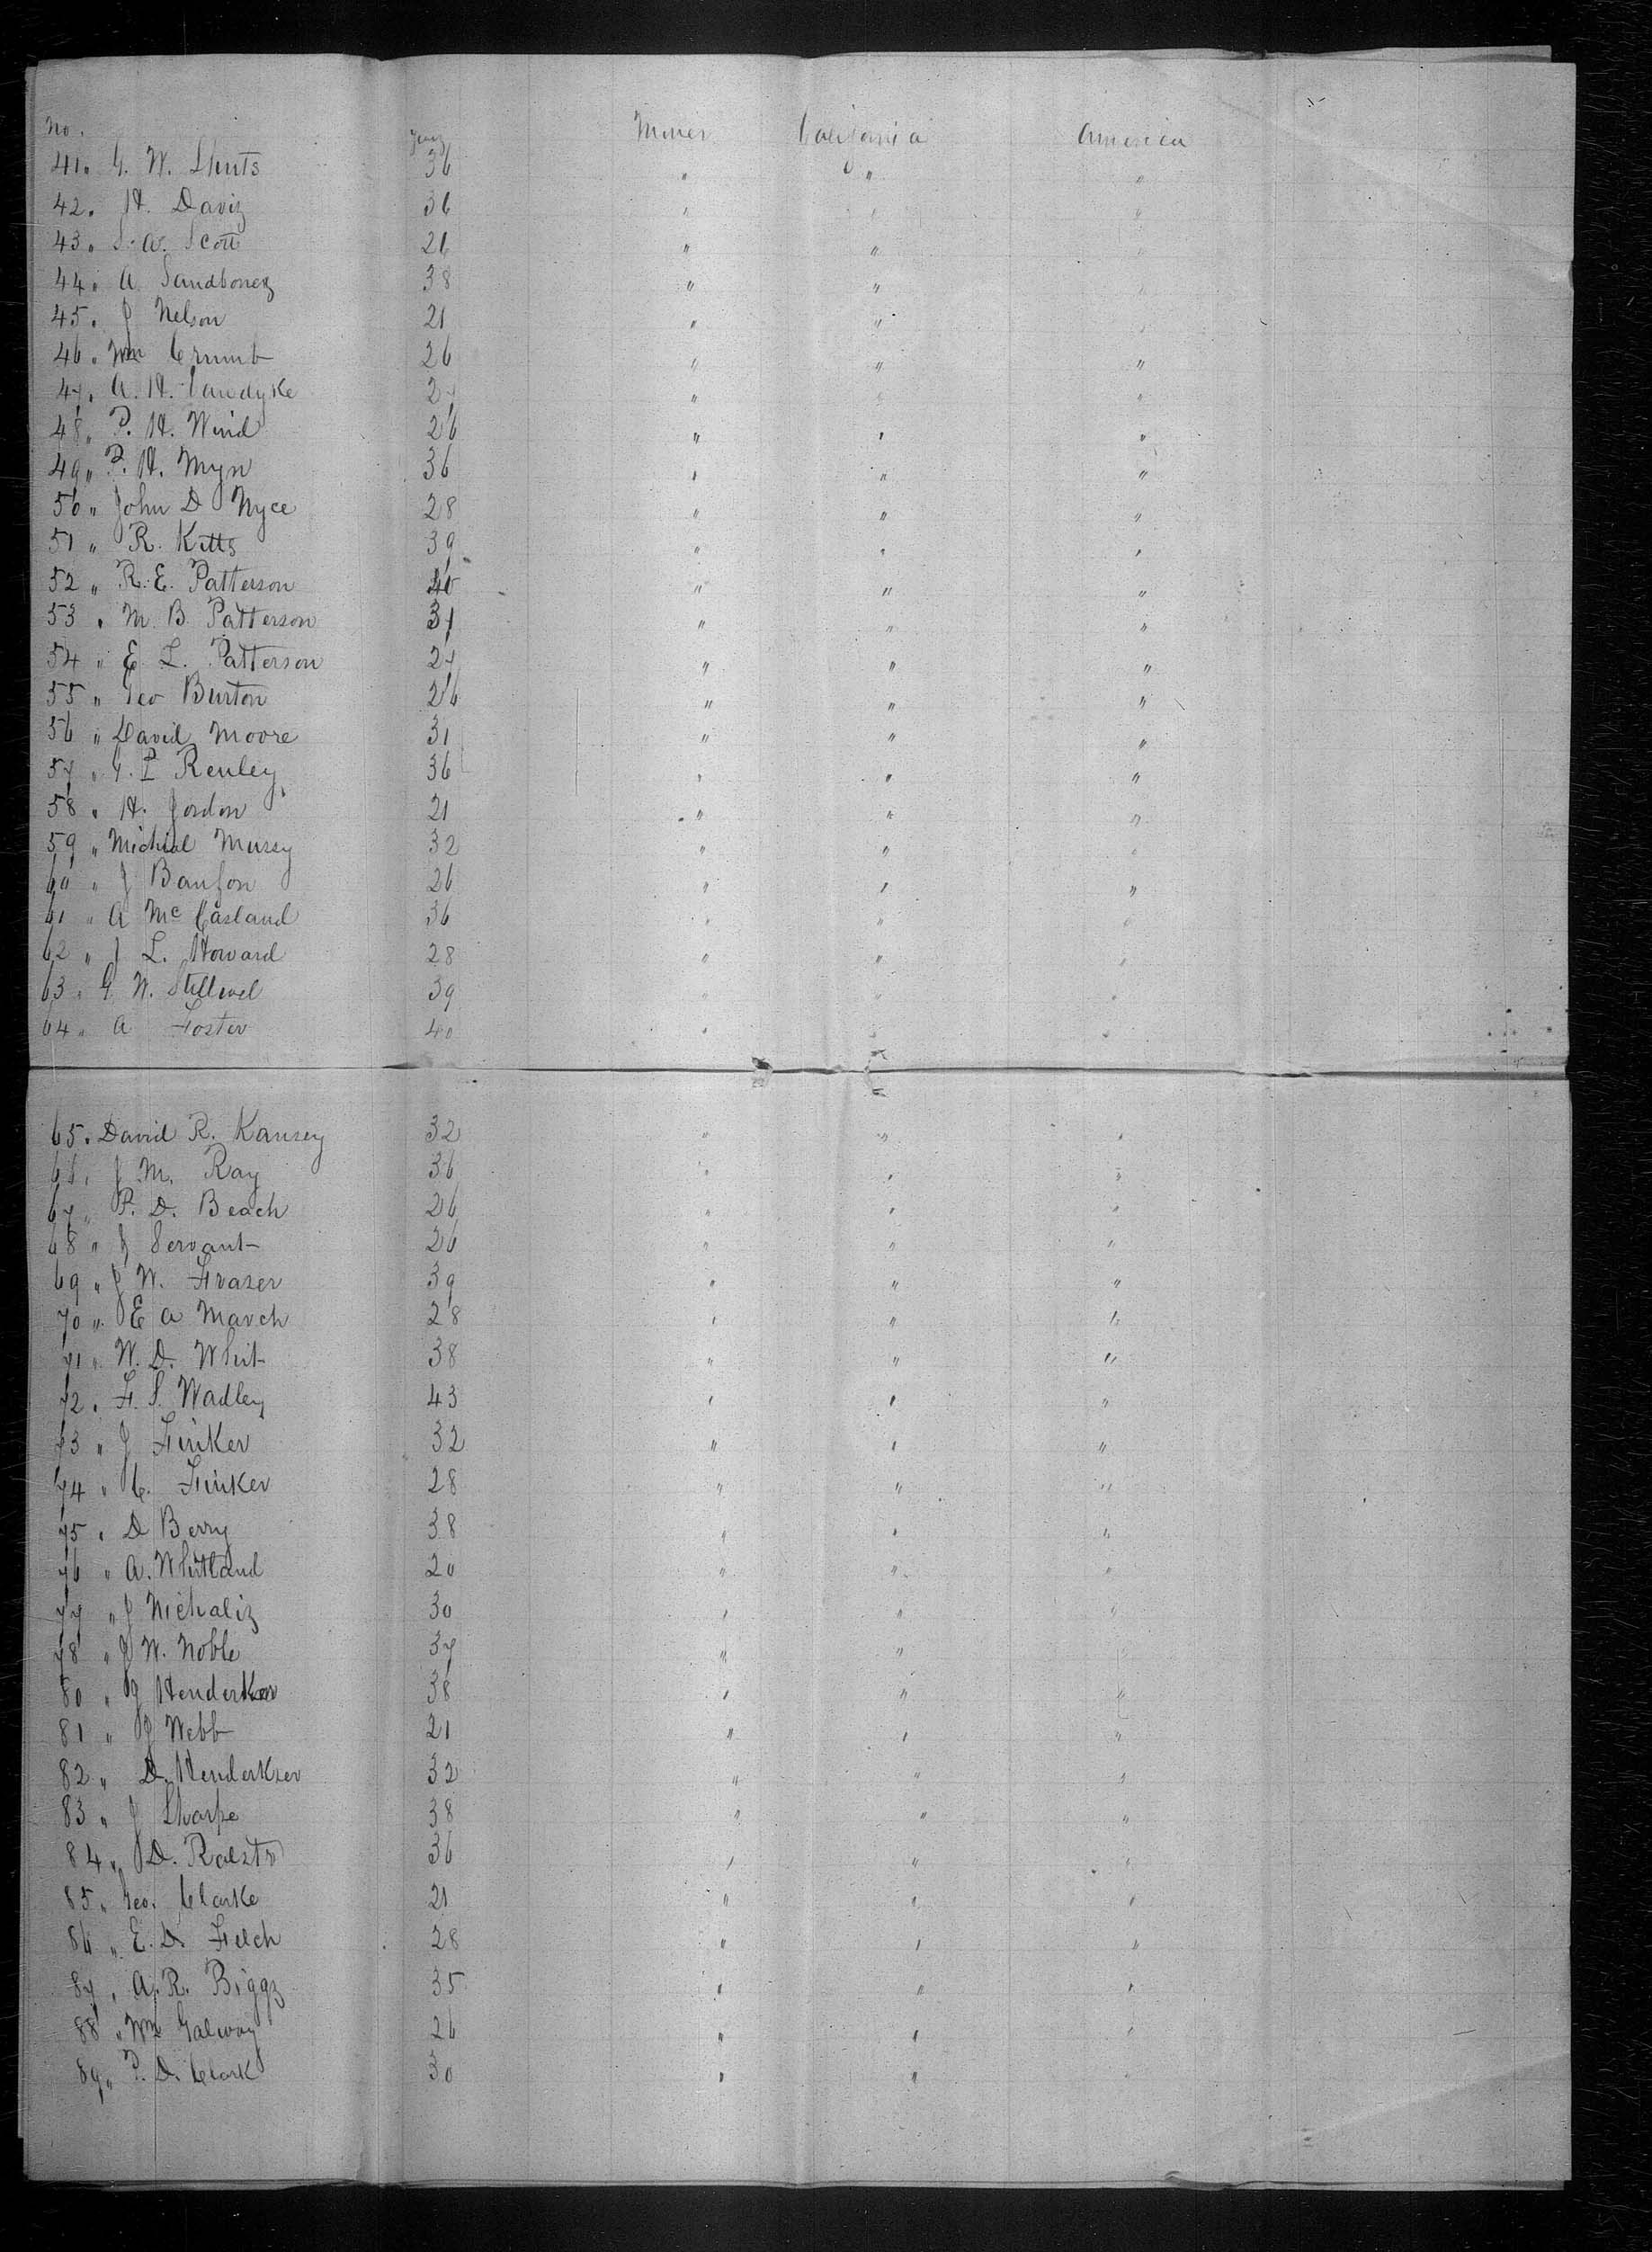 No. Years Miner California America
41 " G. W. Shuts 36 " " "
42 " H. Daviz 36 " " "
43 " S. A. Scott 26 " " "
44 " A Sandbonez 38 " " "
45 " J Nelson 21 " " "
46 " Wm Crumb 26 " " "
47 " A. H. Vandyke 27 " " "
48 " P. H. Wind 26 " " "
49 " P. H. Myn 36 " " "
50 " John D Nyce 28 " " "
51 " R. Kitts 39 " " "
52 " R. E. Patterson 40 " " "
53 " M. B. Patterson 37 " " "
54 " E. L. Patterson 27 " " "
55 " Geo Burton 26 " " "
56 " David Moore 31 " " "
57 " G. P Renley 36 " " "
58 " H. Jordon 21 " " "
59 " Michial Mursy 32 " " "
60 " J Banfon 26 " " "
61 " A Mc Casland 36 " " "
62 " J L. Howard 28 " " "
63 " G W. Stillwel 39 " " "
64 " A Foster 40 " "
65 " David R. Kansey 32 " " "
66 " J M. Ray 36 " " "
67 " P. D. Beach 26 " " "
68 " J Servant 26 " " "
69 " J W. Frazer 39 " " "
70 " E A March 28 " " "
71 " W. D. Whit 38 " " "
72 " F. S. Wadley 43 " " "
73 " J Finker 32 " " "
74 " C. Finker 28 " " "
75 " D Berry 38 " " "
76 " A. Whitland 20 " " "
77 " J Nichaliz 30 " " "
78 " J W. Noble 37 " " "
80 " J 38 " " "
81 " J Webb 21 " " "
82 " D. Henderkser 32 " " "
83 " J Sharpe 38 " " "
84 " D. 36 " " "
85 " Geo. Clarke 21 " " "
86 " E. D. Filch 28 " " "
87 " A. R. Biggz 35 " " "
88 " Wm Galway 26 " " "
89 " P. D. Clark 30 " " "